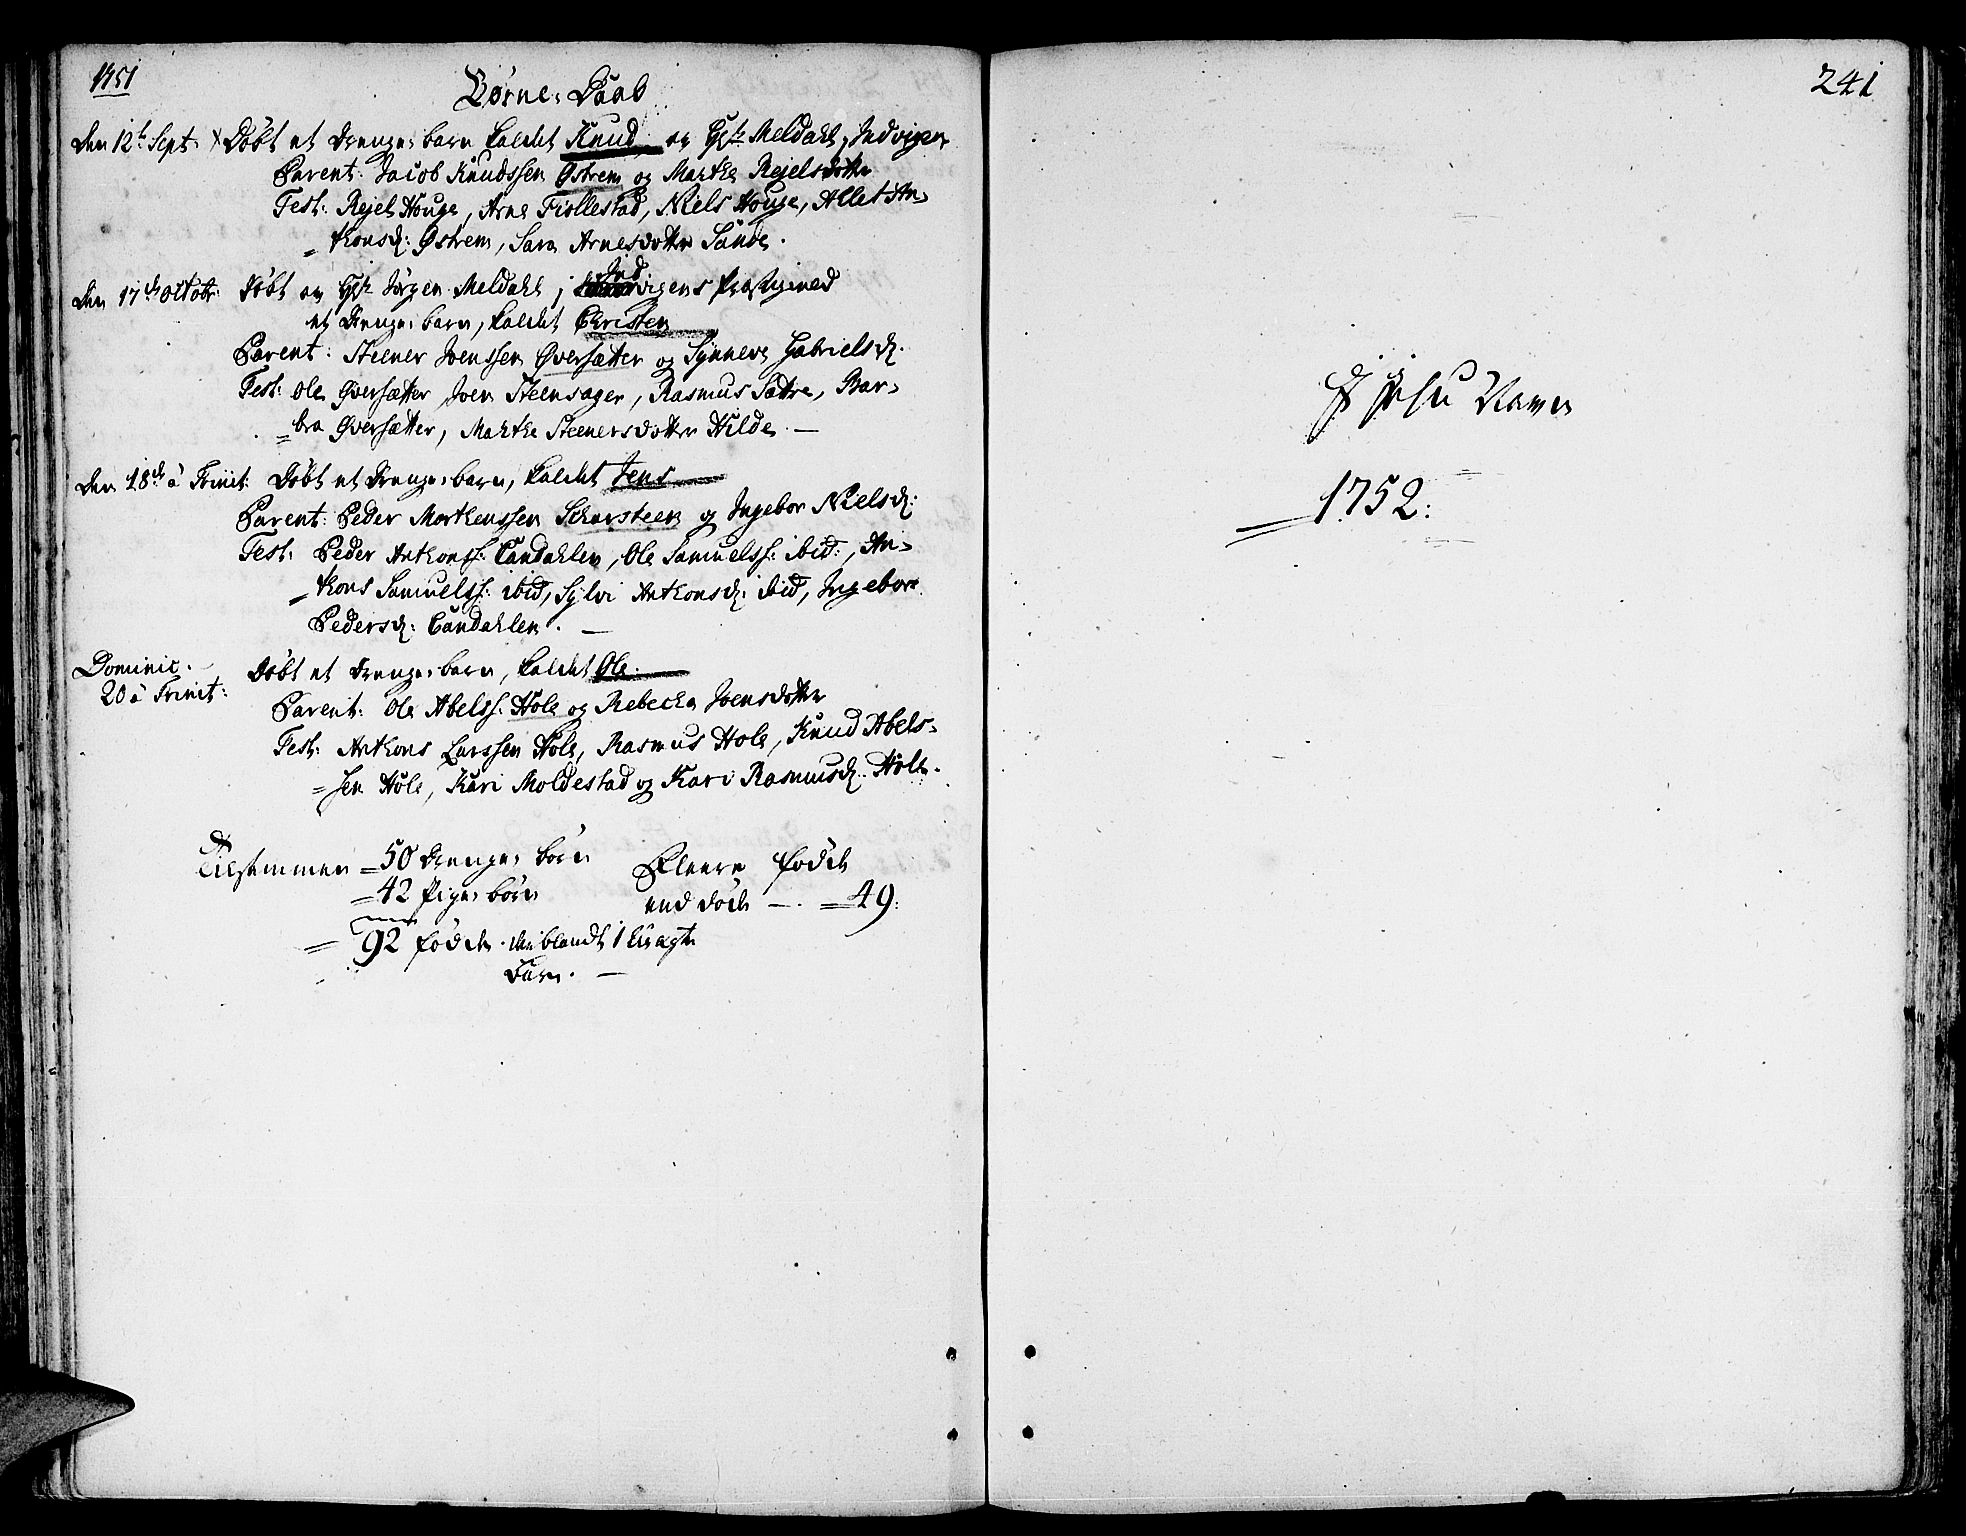 1751
Børne-Daab
Den 12te Sept. Døbt et Drenge-barn kaldet Knud, av Hr. Meldahl, Indvigen
Parent: Jacob Knudssen Østrem og Marthe Rejelsdotter
Test: Rejel Houge, Arne Fiollestad, Niels Houge, Allet An-
=thonsd: Østrem, Sara Arnesdotter Sande.
Den 17de Octobr: Døbt av Hr. Jørgen Meldahl, i Indvigens Præstegield
et Drenge-barn, kaldet Christen
Parent: Steener Joenssen Øversætter og Synneve Gabrielsd.
Test: Ole Øversætter, Joen Steensager, Rasmus Sætre, Bar-
=bra Øversætter, Marthe Steenersdotter Hilde. —
Den 18de à Trinit: Døbt et Drenge-barn, kaldet Jens
Parent: Peder Marthenssen Scharsteen og Ingebor Nielsd:
Test: Peder Anthonss: Candahlen, Ole Samuelss: ibid:, An-
=thons Samuelss: ibid, Sylvi Anthonsd: ibid, Ingebor
Pedersd: Candahlen. —
Dominic.
20 à Trinit: Døbt et Drenge-barn, kaldet Ole.
Parent: Ole Abelss. Hole og Rebecka Joensdotter
Test: Anthons Larssen Hole, Rasmus Hole, Knud Abels-
=sen Hole, Kari Moldestad og Kari Rasmusd. Hole.
Tilsammen =50 Drenge-børn Fleere fødde
=42 Pige-børn end døde —. =49:
= 92 fødde. iblandt 1 Uægte
Barn. —
241
I Jesu Navn
1752: